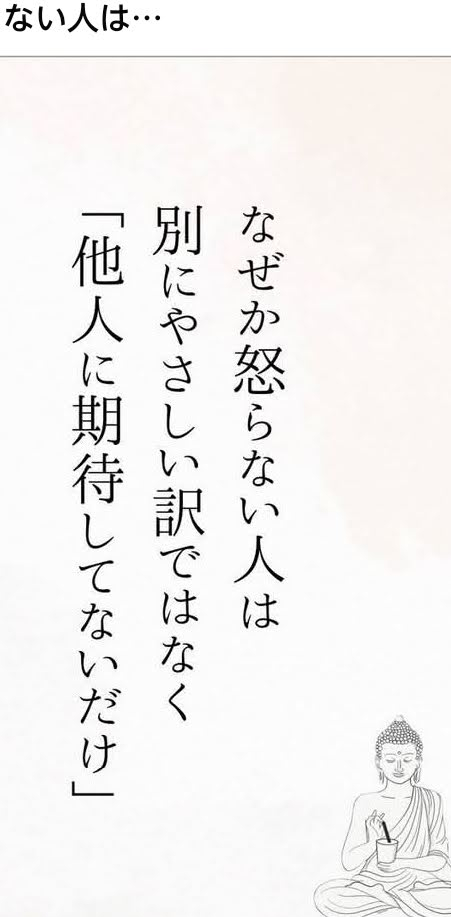 ない人は…
なぜか怒らない人は
別にやさしい訳ではなく
「他人に期待してないだけ」